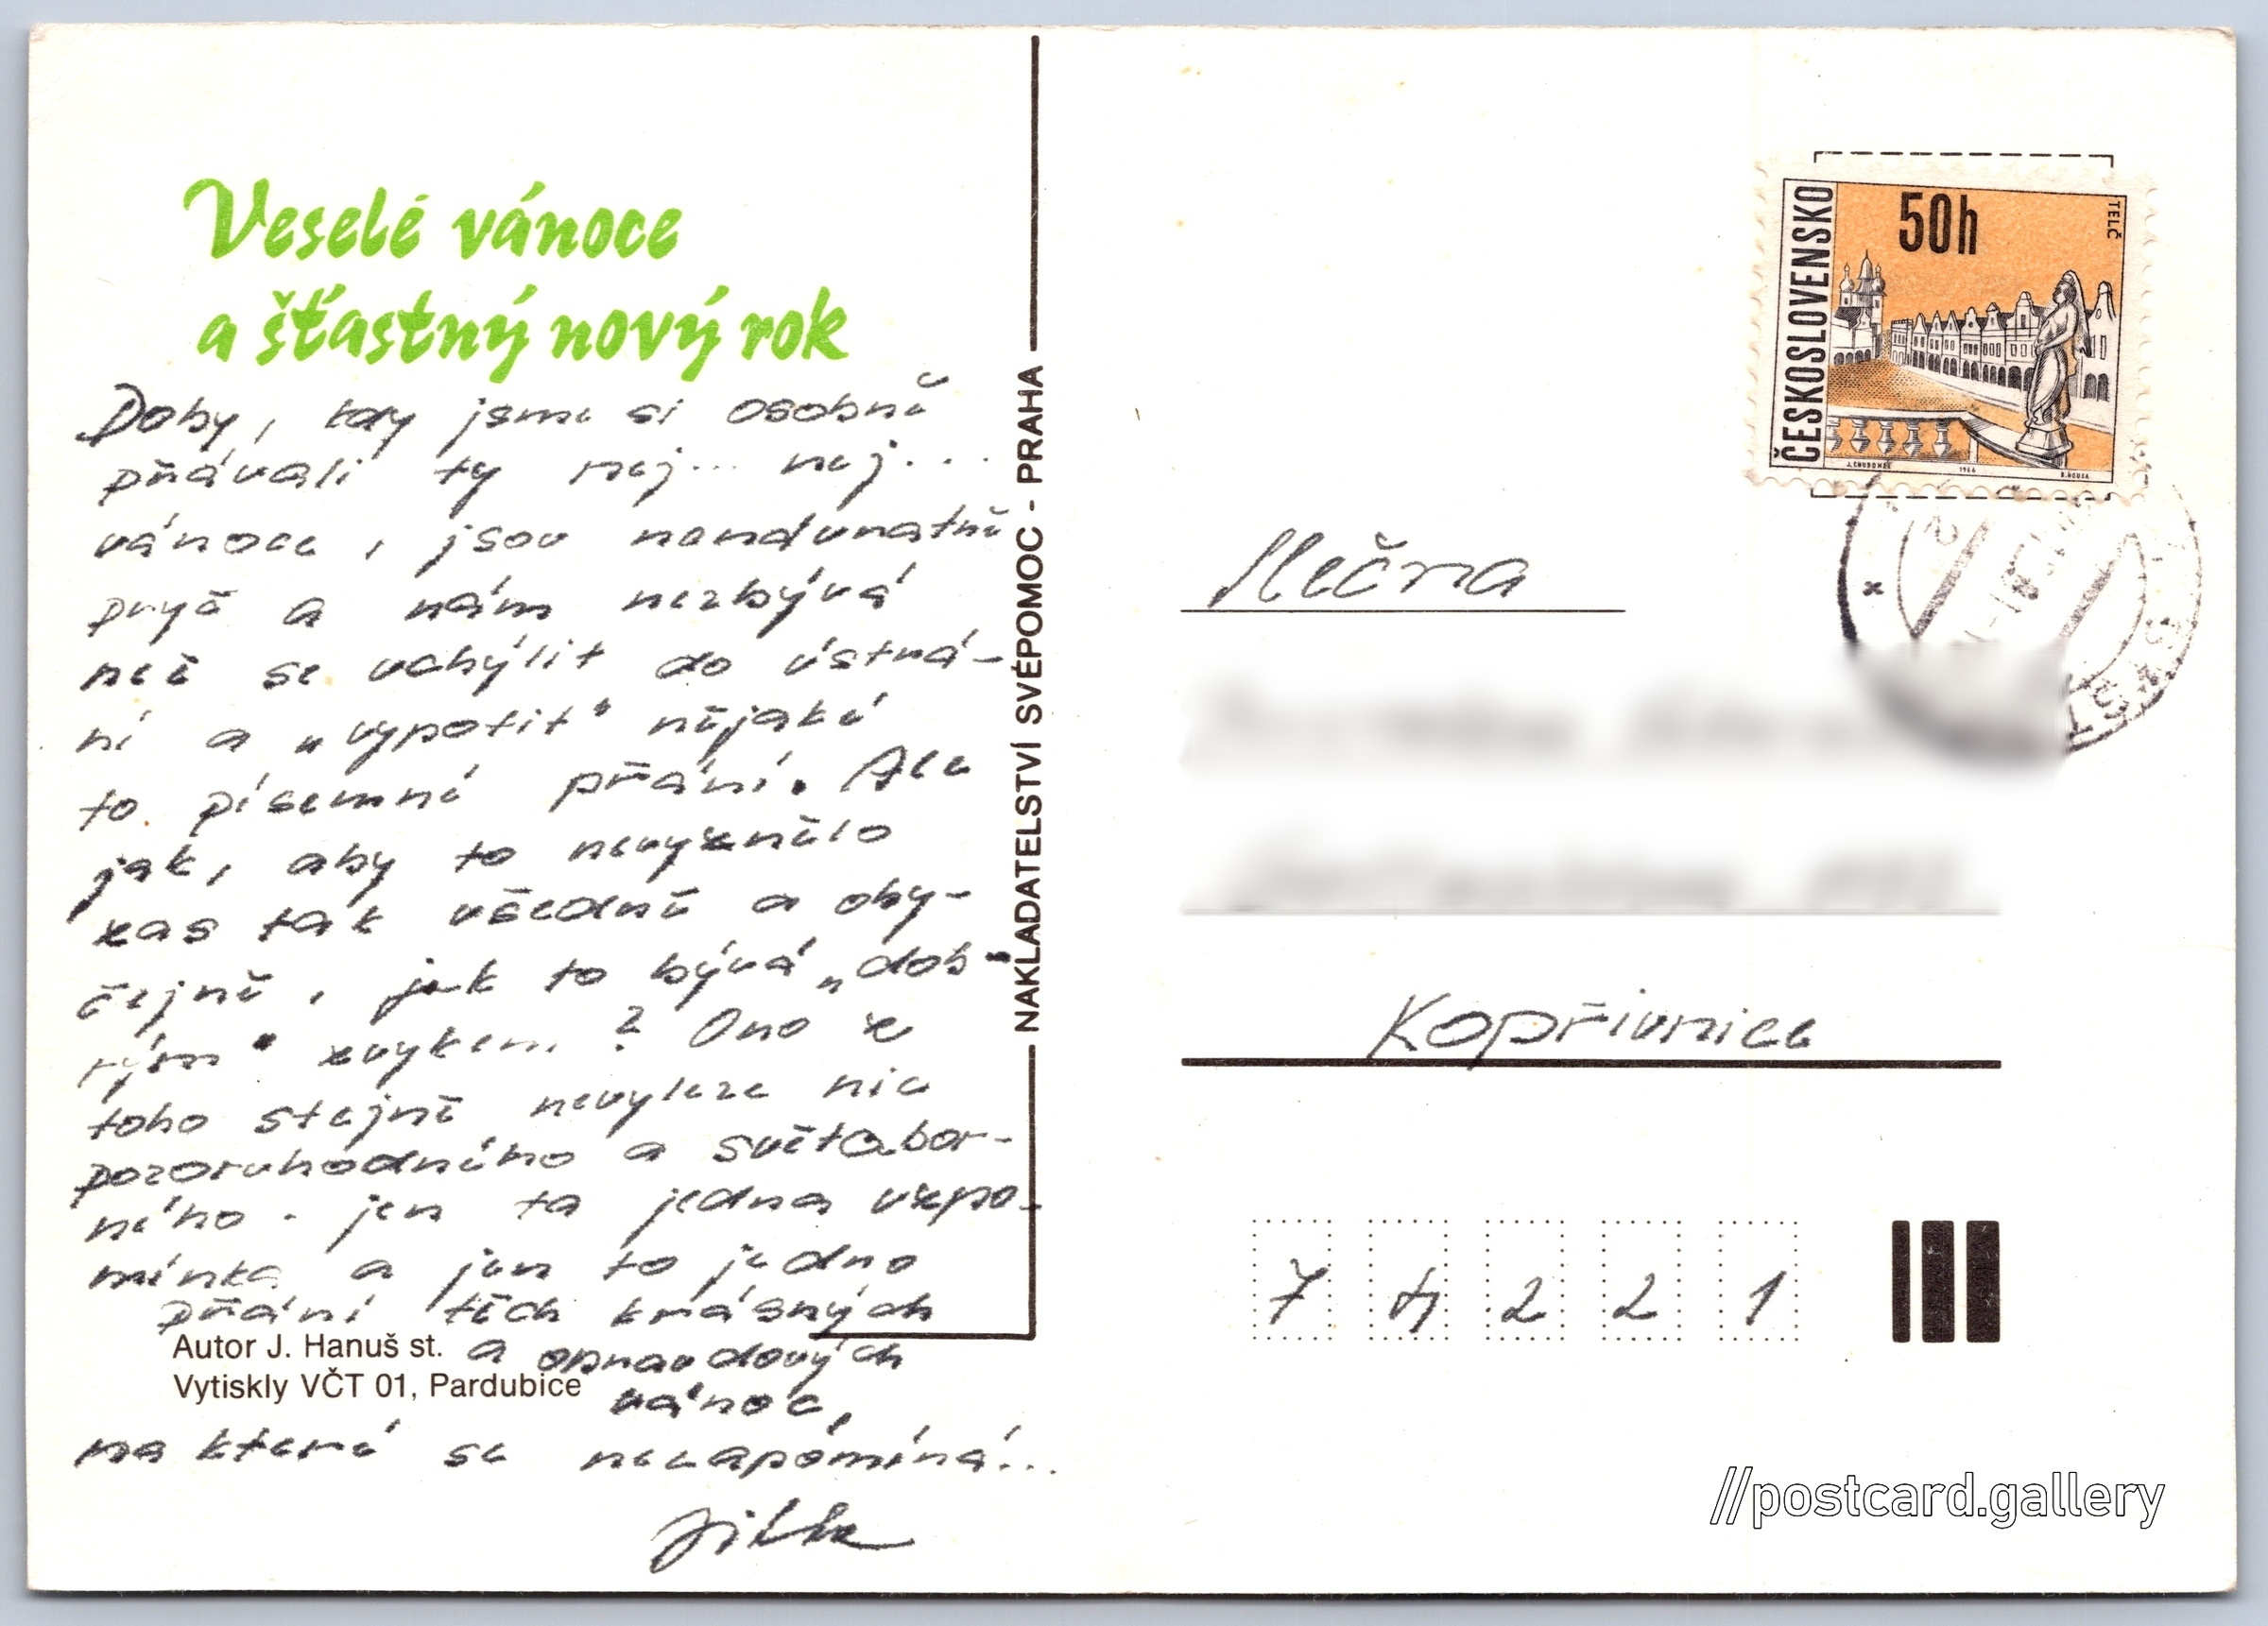 Veselé vánoce
a šťastný nový rok
Doby, kdy jsme si osobně
přávali ty nej... nej...
vánoce, jsou nenávratně
pryč a nám nezbývá
než se uchýlit do ústrá-
ní a „vypotit" nějaké
to písemné přání. Ale
jak, aby to nevyznělo
zas tak všedně a oby-
čejně, jak to bývá „dob-
rým" zvykem? Ono z
toho stejně nevyleze nic
pozoruhodného a světabor-
ného - jen ta jedna vzpo-
mínka a jen to jedno
přání těch krásných
a opravdových
vánoc,
na které se nezapomíná...
Jitka
Autor J. Hanuš st.
Vytiskly VČT 01, Pardubice
NAKLADATELSTVÍ SVÉPOMOC - PRAHA
ČESKOSLOVENSKO
50h
TELČ
1966
Slečna
Kopřivnice
74221
//postcard.gallery